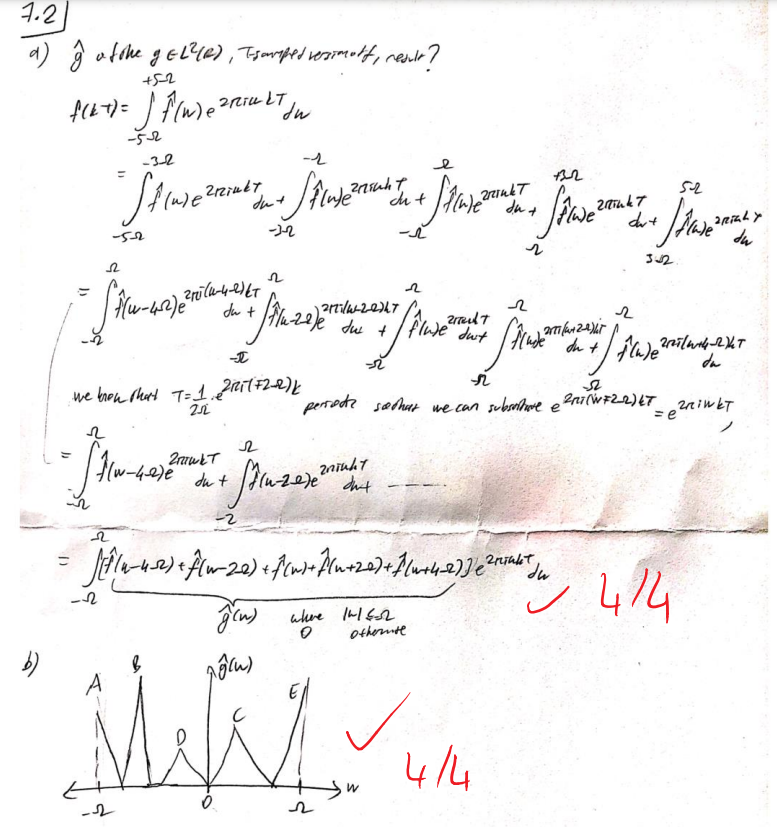 7.2
a) ĝ of the g ∈ L²(ℝ), T-sampled version of f, result?
f(kT) = ∫_{-5Ω}^{+5Ω} f̂(w) e^{2πiwkT} dw
= ∫_{-5Ω}^{-3Ω} f̂(w) e^{2πiwkT} dw + ∫_{-3Ω}^{-Ω} f̂(w) e^{2πiwkT} dw + ∫_{-Ω}^{Ω} f̂(w) e^{2πiwkT} dw + ∫_{Ω}^{+3Ω} f̂(w) e^{2πiwkT} dw + ∫_{3Ω}^{5Ω} f̂(w) e^{2πiwkT} dw
= ∫_{-Ω}^{Ω} f̂(w-4Ω) e^{2πi(w-4Ω)kT} dw + ∫_{-Ω}^{Ω} f̂(w-2Ω) e^{2πi(w-2Ω)kT} dw + ∫_{-Ω}^{Ω} f̂(w) e^{2πiwkT} dw + ∫_{-Ω}^{Ω} f̂(w) e^{2πi(w+2Ω)kT} dw + ∫_{-Ω}^{Ω} f̂(w) e^{2πi(w+4Ω)kT} dw
we know that T = 1/2Ω . e^{2πi(∓2Ω)k} periodic so that we can substitute e^{2πi(w∓2Ω)kT} = e^{2πiwkT},
= ∫_{-Ω}^{Ω} f̂(w-4Ω) e^{2πiwkT} dw + ∫_{-Ω}^{Ω} f̂(w-2Ω) e^{2πiwkT} dw + ------
= ∫_{-Ω}^{Ω} [f̂(w-4Ω) + f̂(w-2Ω) + f̂(w) + f̂(w+2Ω) + f̂(w+4Ω)] e^{2πiwkT} dw
✓ 4/4
ĝ(w) where |w| ≤ Ω
0 otherwise
b)
ĝ(w)
A B D C E
w
-Ω 0 Ω
✓ 4/4